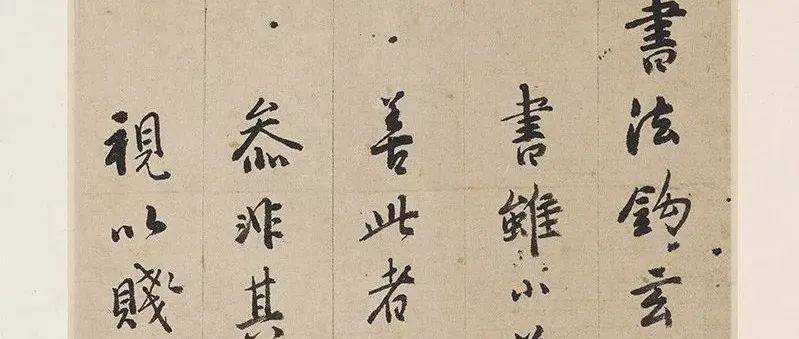 書法鈎玄
書雖小
善此者
叅非其
視以賤